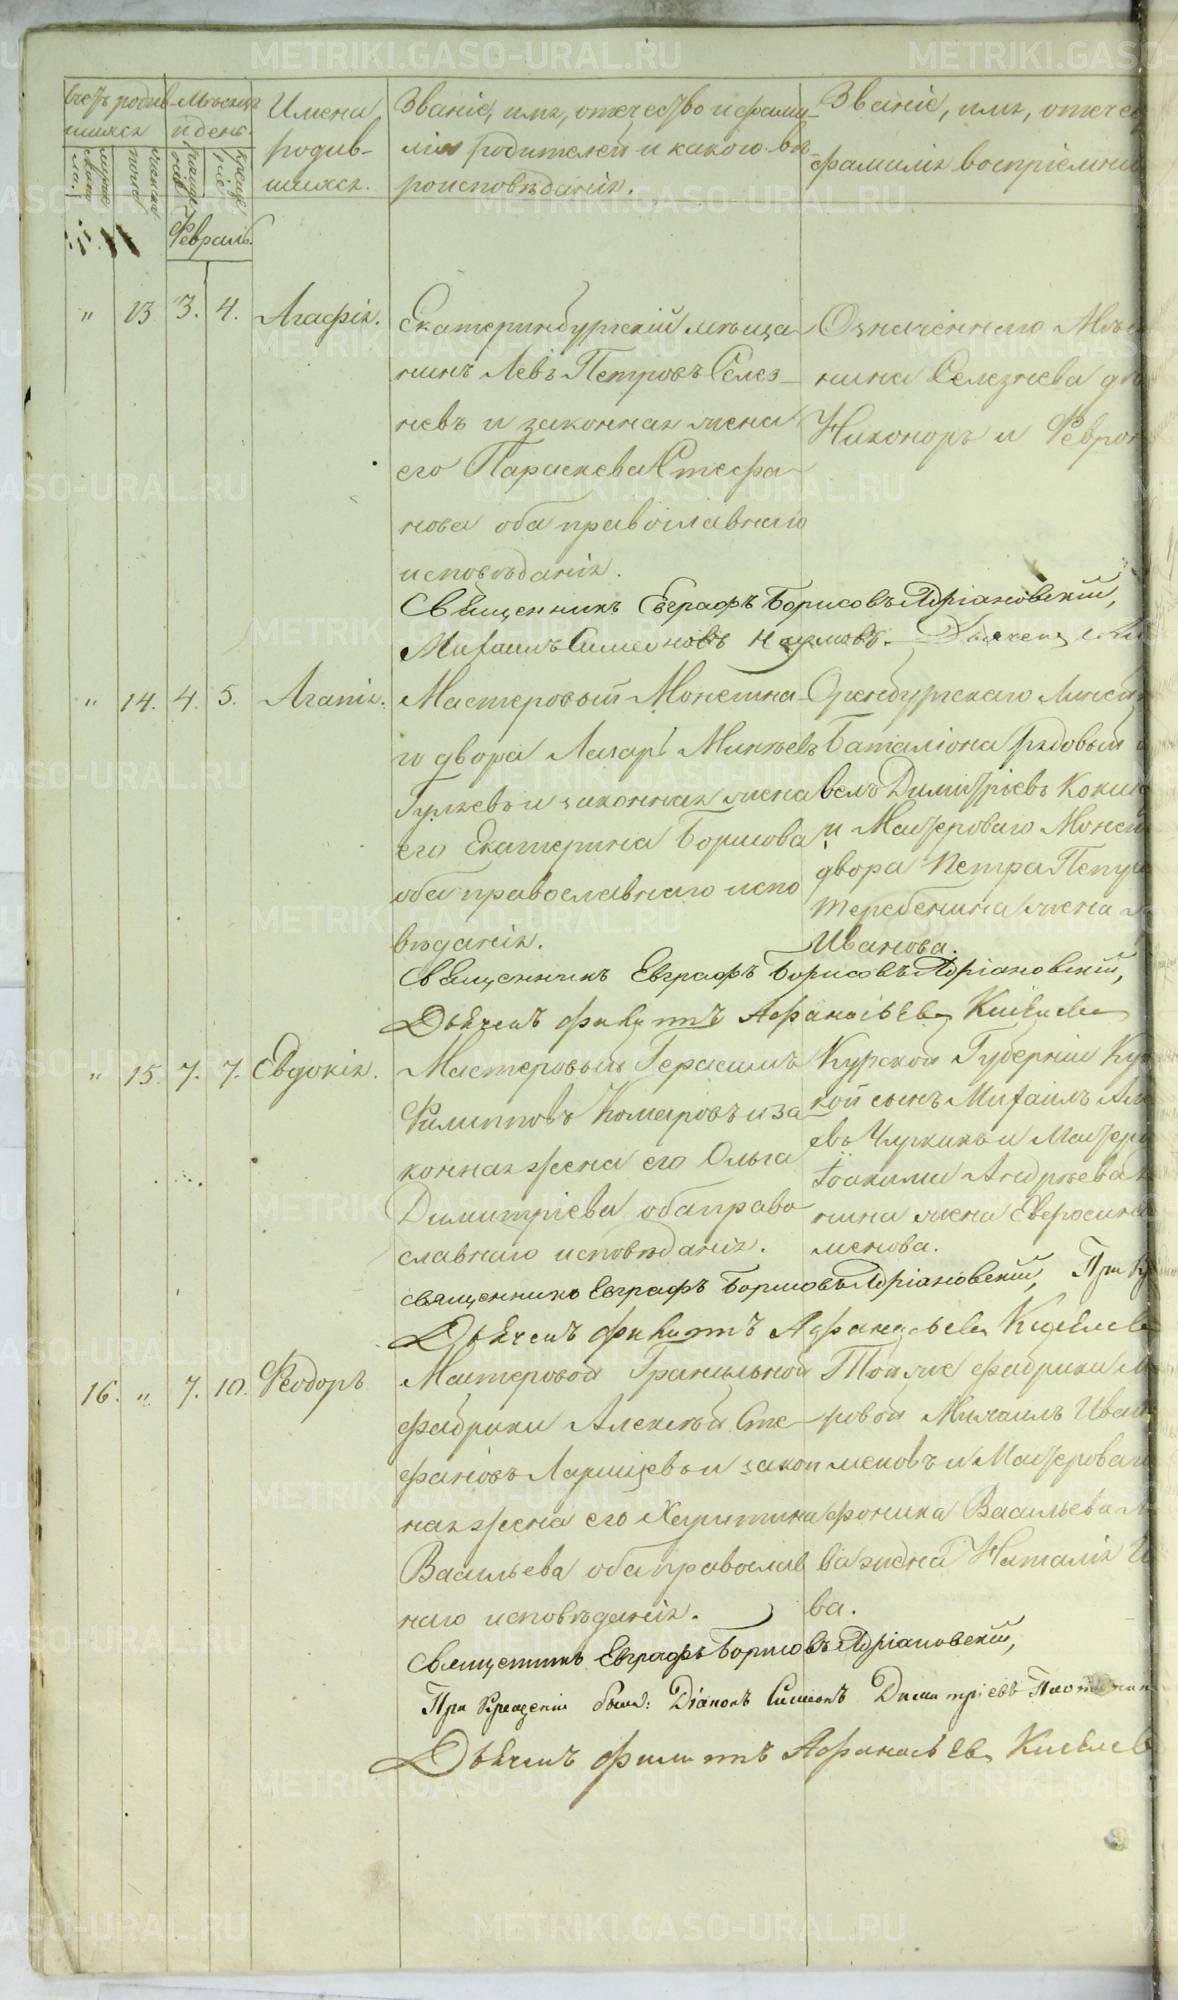 Счетъ родив-
шихся
Мѣсяцъ
и день.
Имена
родив-
шихся.
Званіе, имя, отечество и фами-
лія родителей и какого вѣ-
роисповѣданія.
Званіе, имя, отечес
фамилія воспріемни
Февраль.
" 13 3. 4. Агафія.
Екатеринбургскій мѣща-
нинъ Левъ Петровъ Селез-
невъ и законная жена
его Параскева Стефа-
нова оба православнаго
исповѣданія.
Означеннаго Мѣщ
нина Селезнева
Никоноръ и Феврон
Священникъ Евграфъ Борисовъ Адріановскій,
Михаилъ Симеоновъ Наумовъ.
" 14. 4. 5. Агапія.
Мастеровый Монетна-
го двора Лазарь Михѣевъ
Гуляевъ и законная жена
его Екатерина Борисова
оба православнаго испо
вѣданія.
Оренбургскаго Линей
Баталіона Рядовый
велъ Димитріевъ Кокин
и Мастероваго Монет
двора Петра
Теребенина жена
Иванова.
Священникъ Евграфъ Борисовъ Адріановскій,
Дьячекъ Филиппъ Афанасьевъ Киселевъ
" 15. 7. 7. Евдокія.
Мастеровый Герасимъ
Филиповъ Комаровъ и за
конная жена его Ольга
Димитріева оба право
славнаго исповѣданія.
Курской Губерніи Кур
кой сынъ Михаилъ Ал
евъ Чуркинъ и Мастеро
Іоакима Андреева
нина жена Евфросинія
менова.
священникъ Евграфъ Борисовъ Адріановскій, При кр
Дьячекъ Филиппъ Афанасьевъ Киселевъ
16. " 7. 10. Феодоръ
Мастеровой Гранильной
фабрики Алексѣй Сте-
фановъ Ларинцевъ и закон
ная жена его Харитина
Васильева оба православ
наго исповѣданія.
Той же фабрики М
ровой Михаилъ Иван
меновъ и Мастероваго
Васильева
Наталія И
ва.
Священникъ Евграфъ Борисовъ Адріановскій,
При Крещеніи былъ: Діаконъ Симеонъ Димитріевъ
Дьячекъ Филиппъ Афанасьевъ Киселев
METRIKI.GASO-URAL.RU